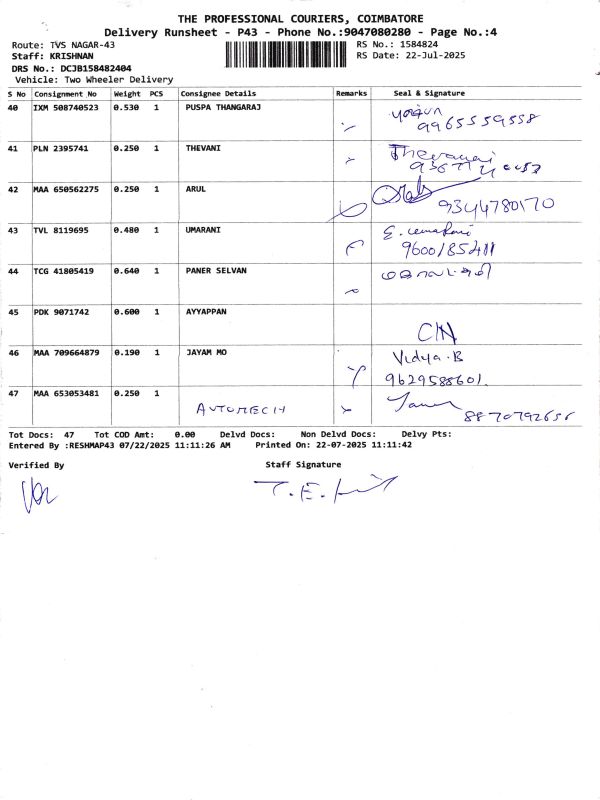 THE PROFESSIONAL COURIERS, COIMBATORE
Delivery Runsheet - P43 - Phone No.:9047080280 - Page No.:4
Route: TVS NAGAR-43 RS No.: 1584824
Staff: KRISHNAN RS Date: 22-Jul-2025
DRS No.: DCJB158482404
Vehicle: Two Wheeler Delivery
S No Consignment No Weight PCS Consignee Details Remarks Seal & Signature
40 IXM 508740523 0.530 1 PUSPA THANGARAJ
9965559558
41 PLN 2395741 0.250 1 THEVANI
42 MAA 650562275 0.250 1 ARUL
9344780170
43 TVL 8119695 0.480 1 UMARANI E. Umarani
9600185411
44 TCG 41805419 0.640 1 PANER SELVAN
45 PDK 9071742 0.600 1 AYYAPPAN
46 MAA 709664879 0.190 1 JAYAM MO Vidya.B
9629588601.
47 MAA 653053481 0.250 1
AUTOMECH 8870792656
Tot Docs: 47 Tot COD Amt: 0.00 Delvd Docs: Non Delvd Docs: Delvy Pts:
Entered By :RESHMAP43 07/22/2025 11:11:26 AM Printed On: 22-07-2025 11:11:42
Verified By Staff Signature